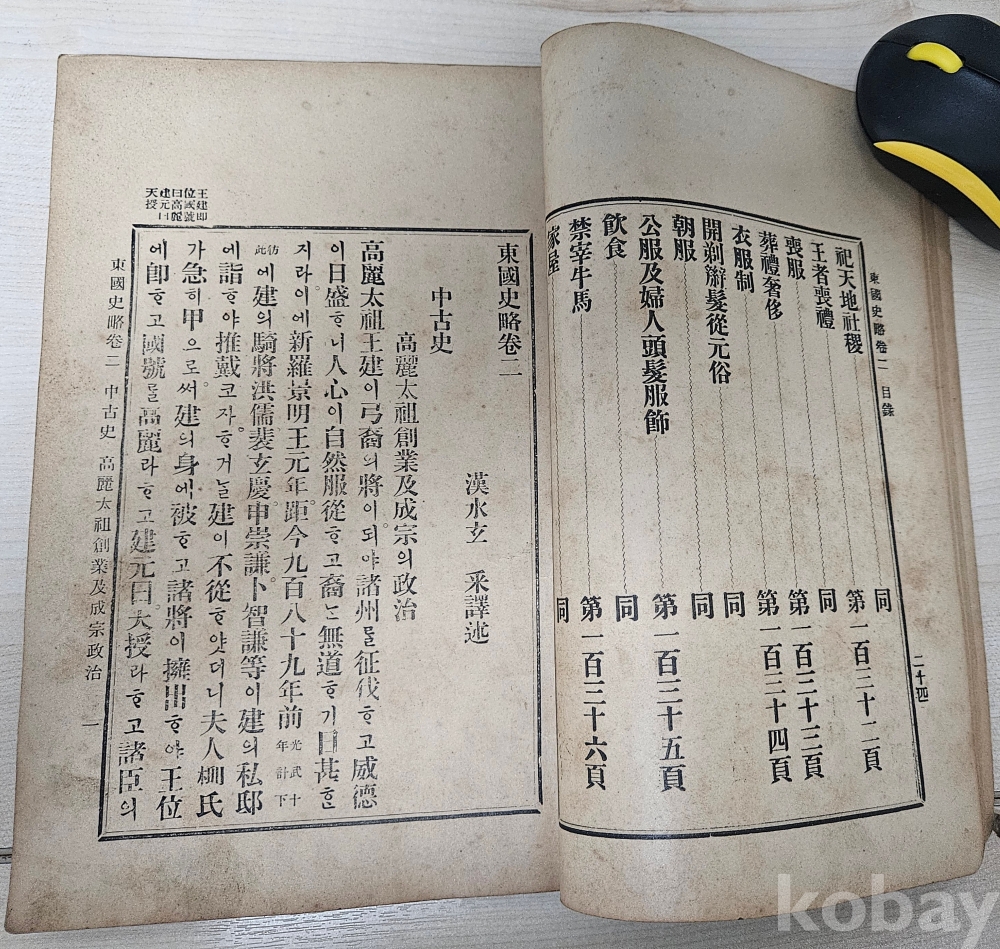 東國史略卷二 目錄 二十四
祀天地社稷 同
王者喪禮 第一百三十二頁
喪服 同
葬禮奢侈 第一百三十三頁
衣服制 第一百三十四頁
開剃辮髮從元俗 同
朝服 同
公服及婦人頭髮服飾 第一百三十五頁
飲食 同
禁宰牛馬 第一百三十六頁
家屋 同
王建即
位國號
曰高麗
建元曰
天授
東國史略卷二
漢水玄 采譯述
中古史
高麗太祖創業及成宗의政治
高麗太祖王建이弓裔의將이되야諸州를征伐ᄒᆞ고威德
이日盛ᄒᆞ니人心이自然服從ᄒᆞ고裔ᄂᆞᆫ無道ᄒᆞ기日甚ᄒᆞᆫ
지라이에新羅景明王元年。距今九百八十九年前光武十年計下
彷此에建의騎將洪儒裴玄慶申崇謙卜智謙等이建의私邸
에詣ᄒᆞ야推戴코자ᄒᆞ거ᄂᆞᆯ建이不從ᄒᆞ얏더니夫人柳氏
가急히甲으로써建의身에被ᄒᆞ고諸將이擁出ᄒᆞ야王位
에卽ᄒᆞ고國號ᄅᆞᆯ高麗라ᄒᆞ고建元曰天授라ᄒᆞ고諸臣의
東國史略卷二 中古史 高麗太祖創業及成宗政治 一
kobay